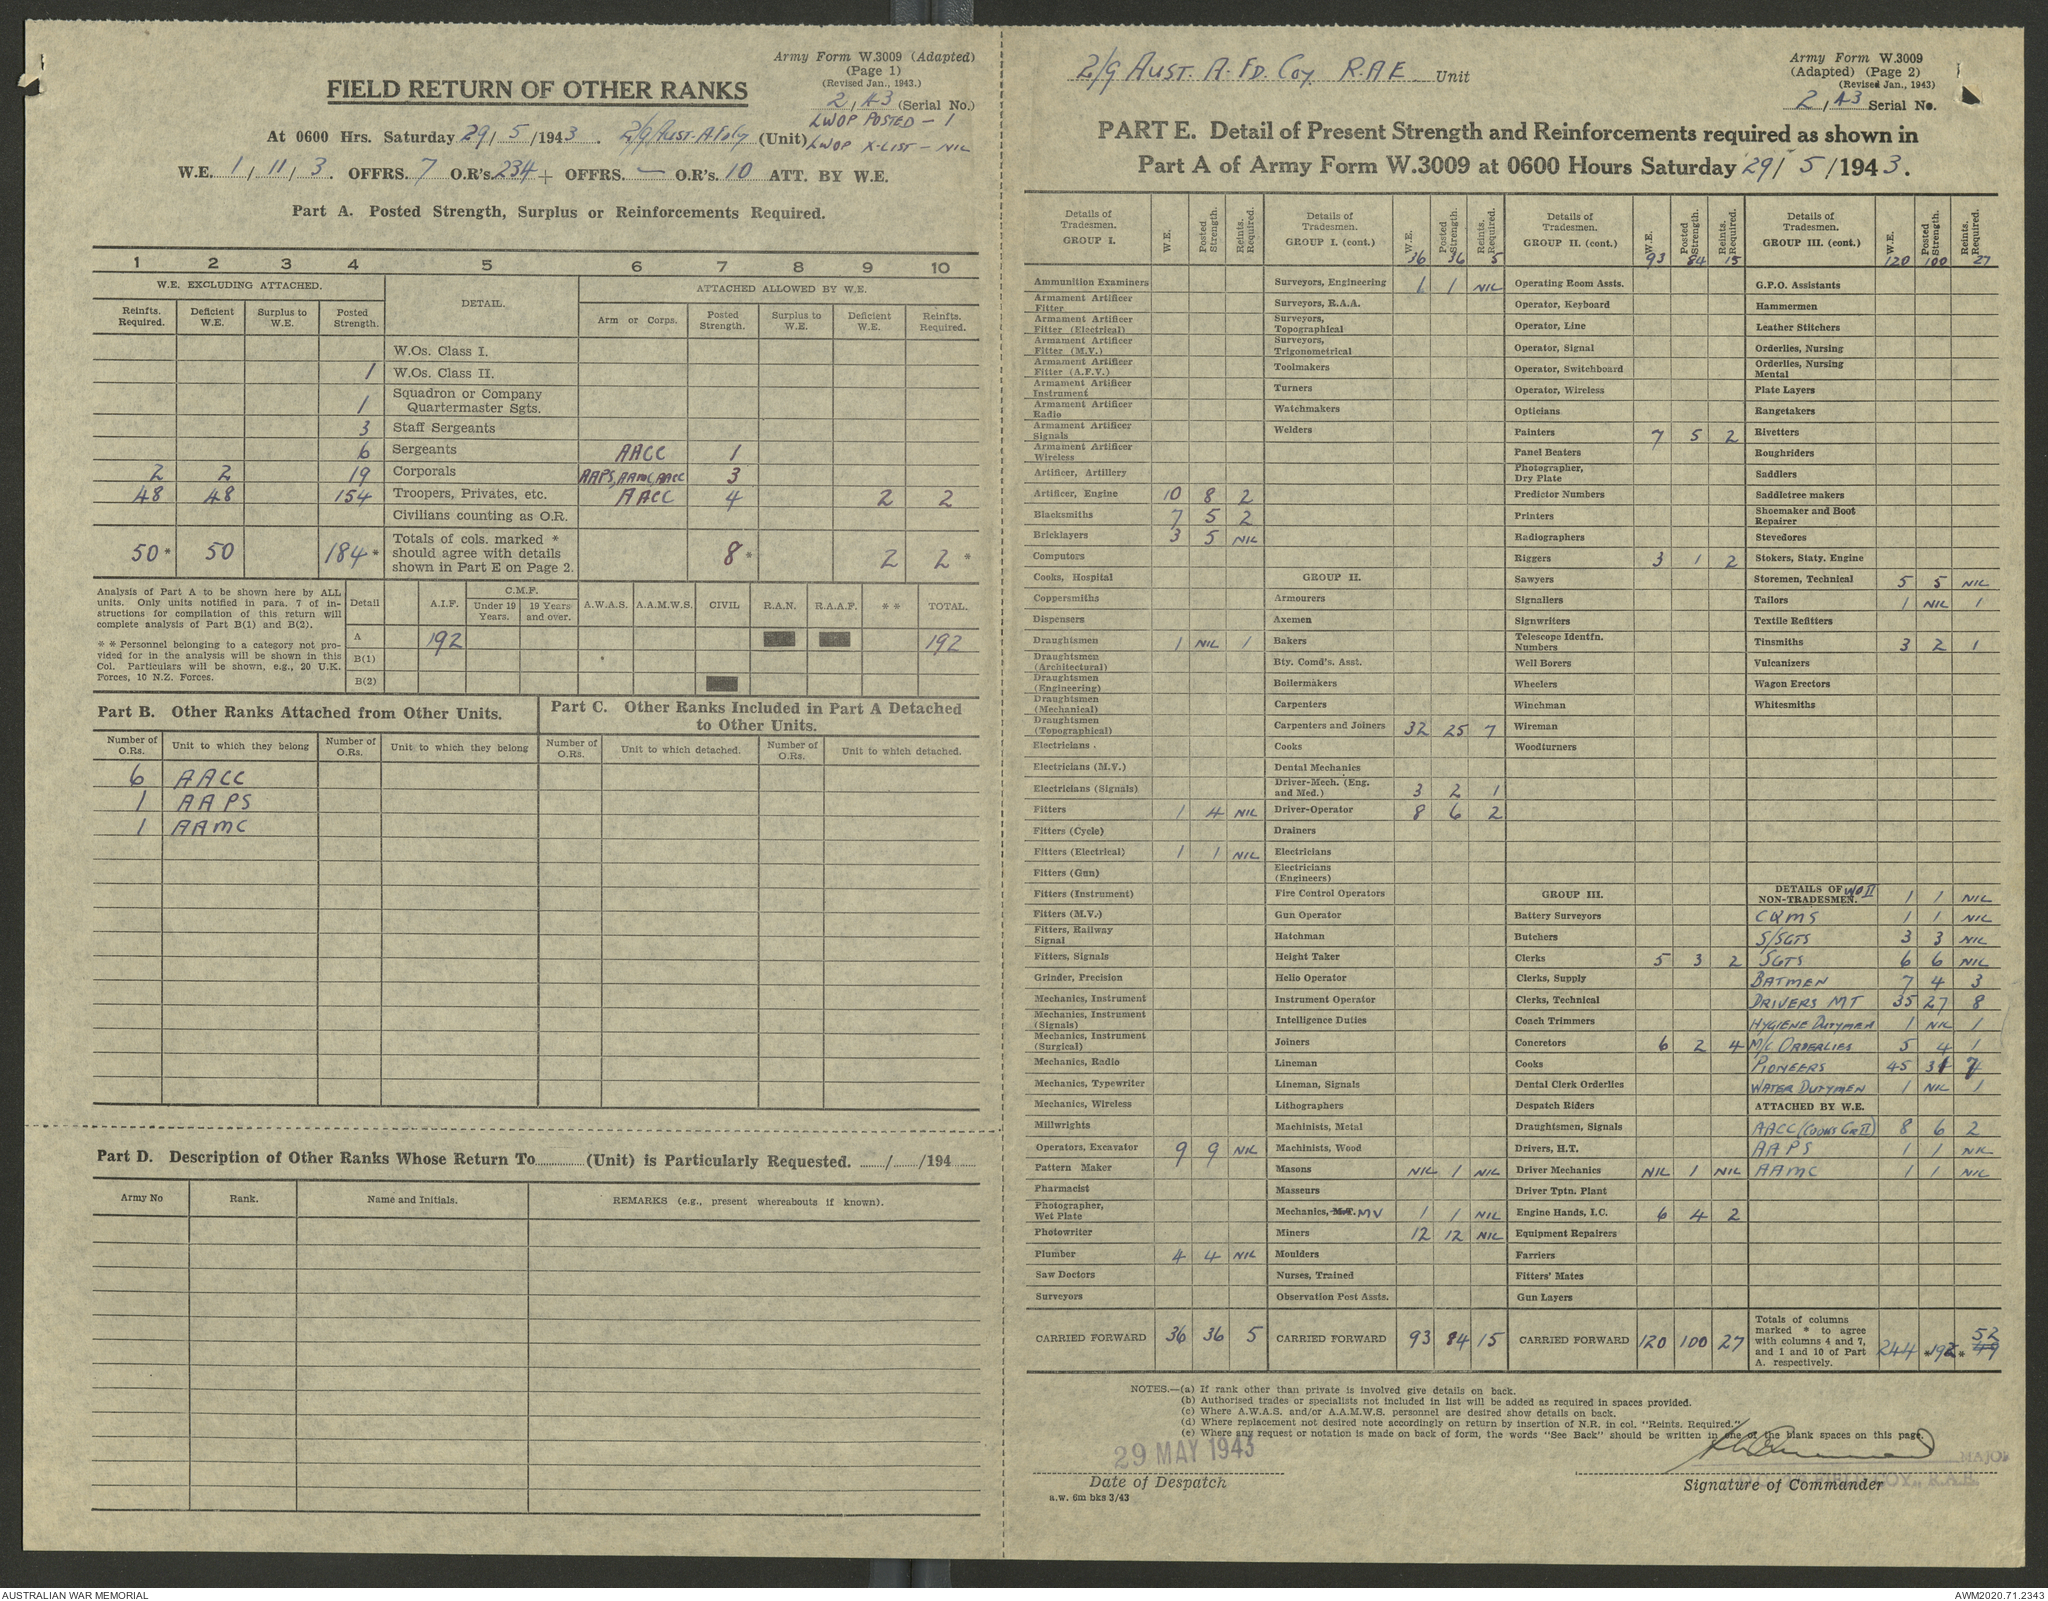 Army Form W.3009 (Adapted)
(Page 1)
(Revised Jan., 1943.)
FIELD RETURN OF OTHER RANKS
2, 43 (Serial No.)
LWOP POSTED - 1
At 0600 Hrs. Saturday 29/ 5 /1943. (Unit)
LWOP X-LIST - NIL
W.E. 1, 11, 3. OFFRS. 7 O.R's. 234 + OFFRS. — O.R's. 10 ATT. BY W.E.
Part A. Posted Strength, Surplus or Reinforcements Required.
1 2 3 4 5 6 7 8 9 10
W.E. EXCLUDING ATTACHED. DETAIL. ATTACHED ALLOWED BY W.E.
Reinfts. Required. Deficient W.E. Surplus to W.E. Posted Strength. Arm or Corps. Posted Strength. Surplus to W.E. Deficient W.E. Reinfts. Required.
W.Os. Class I.
1 W.Os. Class II.
1 Squadron or Company Quartermaster Sgts.
3 Staff Sergeants
6 Sergeants AACC 1
2 2 19 Corporals AAPS, AAMC, AACC 3
48 48 154 Troopers, Privates, etc. AACC 4 2 2
Civilians counting as O.R.
50* 50 184* Totals of cols. marked * should agree with details shown in Part E on Page 2. 8* 2 2*
Analysis of Part A to be shown here by ALL
units. Only units notified in para. 7 of in-
structions for compilation of this return will
complete analysis of Part B(1) and B(2).
* * Personnel belonging to a category not pro-
vided for in the analysis will be shown in this
Col. Particulars will be shown, e.g., 20 U.K.
Forces, 10 N.Z. Forces.
Detail A.I.F. C.M.F. Under 19 Years. 19 Years and over. A.W.A.S. A.A.M.W.S. CIVIL R.A.N. R.A.A.F. * * TOTAL.
A 192 192
B(1)
B(2)
Part B. Other Ranks Attached from Other Units.
Part C. Other Ranks Included in Part A Detached
to Other Units.
Number of O.Rs. Unit to which they belong Number of O.Rs. Unit to which they belong Number of O.Rs. Unit to which detached. Number of O.Rs. Unit to which detached.
6 AACC
1 AAPS
1 AAMC
Part D. Description of Other Ranks Whose Return To............(Unit) is Particularly Requested. ....../....../194......
Army No Rank. Name and Initials. REMARKS (e.g., present whereabouts if known).
2/9 AUST. A. FD. COY. R.A.E Unit
Army Form W.3009
(Adapted) (Page 2)
(Revised Jan., 1943)
2, 43 Serial No.
PART E. Detail of Present Strength and Reinforcements required as shown in
Part A of Army Form W.3009 at 0600 Hours Saturday 29/ 5 /1943.
Details of Tradesmen. GROUP I. W.E. Posted Strength. Reints. Required.
Ammunition Examiners
Armament Artificer Fitter
Armament Artificer Fitter (Electrical)
Armament Artificer Fitter (M.V.)
Armament Artificer Fitter (A.F.V.)
Armament Artificer Instrument
Armament Artificer Radio
Armament Artificer Signals
Armament Artificer Wireless
Artificer, Artillery
Artificer, Engine 10 8 2
Blacksmiths 7 5 2
Bricklayers 3 5 NIL
Computors
Cooks, Hospital
Coppersmiths
Dispensers
Draughtsmen 1 NIL 1
Draughtsmen (Architectural)
Draughtsmen (Engineering)
Draughtsmen (Mechanical)
Draughtsmen (Topographical)
Electricians
Electricians (M.V.)
Electricians (Signals)
Fitters 1 4 NIL
Fitters (Cycle)
Fitters (Electrical) 1 1 NIL
Fitters (Gun)
Fitters (Instrument)
Fitters (M.V.)
Fitters, Railway Signal
Fitters, Signals
Grinder, Precision
Mechanics, Instrument
Mechanics, Instrument (Signals)
Mechanics, Instrument (Surgical)
Mechanics, Radio
Mechanics, Typewriter
Mechanics, Wireless
Millwrights
Operators, Excavator 9 9 NIL
Pattern Maker
Pharmacist
Photographer, Wet Plate
Photowriter
Plumber 4 4 NIL
Saw Doctors
Surveyors
CARRIED FORWARD 36 36 5
Details of Tradesmen. GROUP I. (cont.) W.E. Posted Strength. Reints. Required. 36 36 5
Surveyors, Engineering 1 1 NIL
Surveyors, R.A.A.
Surveyors, Topographical
Surveyors, Trigonometrical
Toolmakers
Turners
Watchmakers
Welders
GROUP II.
Armourers
Axemen
Bakers
Bty. Comd's. Asst.
Boilermakers
Carpenters
Carpenters and Joiners 32 25 7
Cooks
Dental Mechanics
Driver-Mech. (Eng. and Med.) 3 2 1
Driver-Operator 8 6 2
Drainers
Electricians
Electricians (Engineers)
Fire Control Operators
Gun Operator
Hatchman
Height Taker
Helio Operator
Instrument Operator
Intelligence Duties
Joiners
Lineman
Lineman, Signals
Lithographers
Machinists, Metal
Machinists, Wood
Masons NIL 1 NIL
Masseurs
Mechanics, M.T. MV 1 1 NIL
Miners 12 12 NIL
Moulders
Nurses, Trained
Observation Post Assts.
CARRIED FORWARD 93 84 15
Details of Tradesmen. GROUP II. (cont.) W.E. Posted Strength. Reints. Required. 93 84 15
Operating Room Assts.
Operator, Keyboard
Operator, Line
Operator, Signal
Operator, Switchboard
Operator, Wireless
Opticians
Painters 7 5 2
Panel Beaters
Photographer, Dry Plate
Predictor Numbers
Printers
Radiographers
Riggers 3 1 2
Sawyers
Signallers
Signwriters
Telescope Identfn. Numbers
Well Borers
Wheelers
Winchman
Wireman
Woodturners
GROUP III.
Battery Surveyors
Butchers
Clerks 5 3 2
Clerks, Supply
Clerks, Technical
Coach Trimmers
Concretors 6 2 4
Cooks
Dental Clerk Orderlies
Despatch Riders
Draughtsmen, Signals
Drivers, H.T.
Driver Mechanics NIL 1 NIL
Driver Tptn. Plant
Engine Hands, I.C. 6 4 2
Equipment Repairers
Farriers
Fitters' Mates
Gun Layers
CARRIED FORWARD 120 100 27
Details of Tradesmen. GROUP III. (cont.) W.E. Posted Strength. Reints. Required. 120 100 27
G.P.O. Assistants
Hammermen
Leather Stitchers
Orderlies, Nursing
Orderlies, Nursing Mental
Plate Layers
Rangetakers
Rivetters
Roughriders
Saddlers
Saddletree makers
Shoemaker and Boot Repairer
Stevedores
Stokers, Staty. Engine
Storemen, Technical 5 5 NIL
Tailors 1 NIL 1
Textile Refitters
Tinsmiths 3 2 1
Vulcanizers
Wagon Erectors
Whitesmiths
DETAILS OF NON-TRADESMEN. WO II 1 1 NIL
CQMS 1 1 NIL
S/SGTS 3 3 NIL
SGTS 6 6 NIL
BATMEN 7 4 3
DRIVERS MT 35 27 8
HYGIENE DUTYMEN 1 NIL 1
M/C ORDERLIES 5 4 1
PIONEERS 45
WATER DUTYMEN 1 NIL 1
ATTACHED BY W.E.
AACC (COOKS GR II) 8 6 2
AAPS 1 1 NIL
AAMC 1 1 NIL
Totals of columns marked * to agree with columns 4 and 7, and 1 and 10 of Part A. respectively. 244 *192* 52 49
NOTES.—(a) If rank other than private is involved give details on back.
(b) Authorised trades or specialists not included in list will be added as required in spaces provided.
(c) Where A.W.A.S. and/or A.A.M.W.S. personnel are desired show details on back.
(d) Where replacement not desired note accordingly on return by insertion of N.R. in col. "Reints. Required."
(e) Where any request or notation is made on back of form, the words "See Back" should be written in one of the blank spaces on this page.
29 MAY 1943
MAJOR
Date of Despatch
Signature of Commander
a.w. 6m bks 3/43
AUSTRALIAN WAR MEMORIAL
AWM2020.71.2343